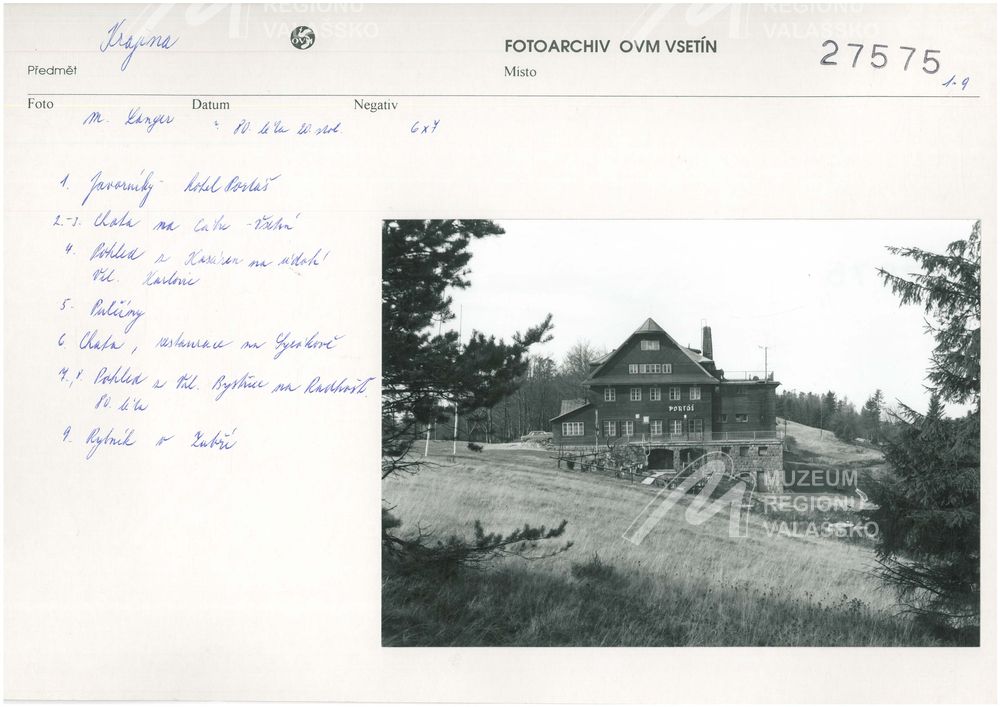 REGIONU
VALAŠSKO
REGIONU
VALAŠSKO
Krajina
OVM
FOTOARCHIV OVM VSETÍN
27575
1-9
Předmět
Místo
Foto Datum Negativ
M. Langer 80. léta 20. stol. 6x7
1. Javorníky - hotel Portáš
2.-3. Chata na Cábu - Vsetín
4. Pohled z Kasáren na údolí
Vel. Karlovic
5. Pulčiny
6. Chata, restaurace na Syrákově
7., 8. Pohled z Val. Bystřice na Radhošť.
80. léta
9. Rybník v Zubří
PORTÁŠ
MUZEUM
REGIONU
VALAŠSKO